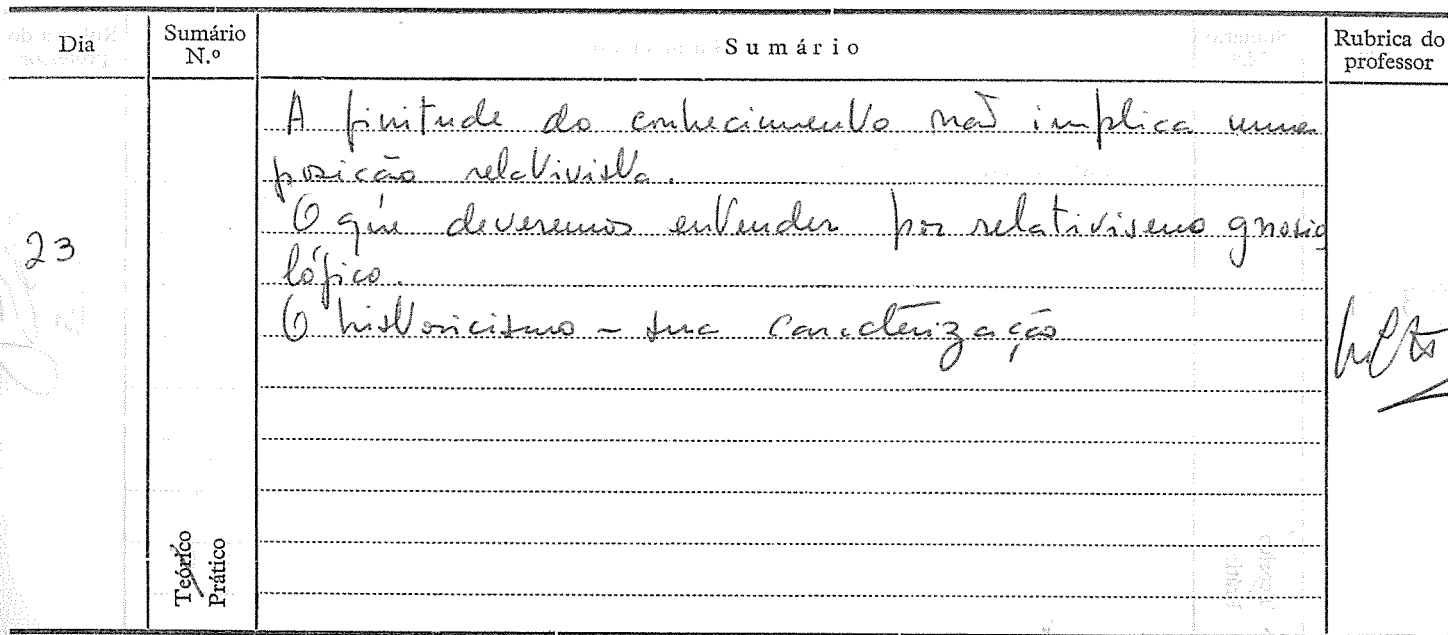 Dia
Sumário N.º
Sumário
Rubrica do professor
23
A finitude do conhecimento não implica uma
posição relativista.
O que deveremos entender por relativismo gnosio
lógico.
O historicismo - sua caracterização
Teórico
Prático